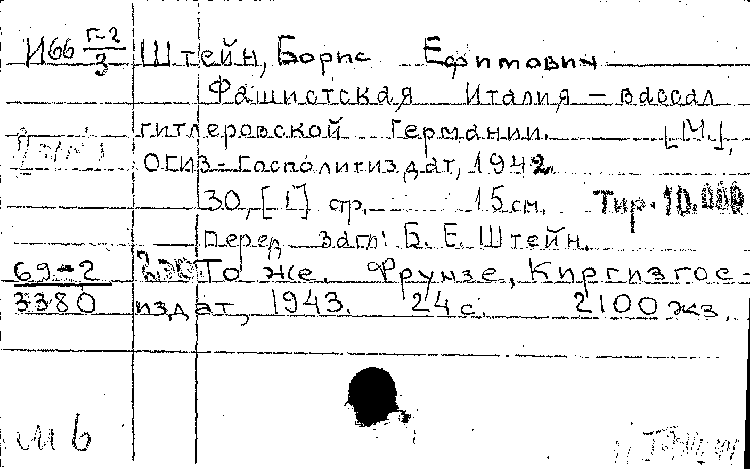 И66 г-2/3 Штейн, Борис Ефимович
Фашистская Италия – вассал
гитлеровской Германии. [М.],
ОГИЗ-Госполитиздат, 1942.
30, [1] стр. 15 см. Тир. 10.000
перед загл: Б. Е. Штейн.
69-2 То же. Фрунзе, Киргизгос-
3380 издат, 1943. 24 с. 2100 экз.
М 6